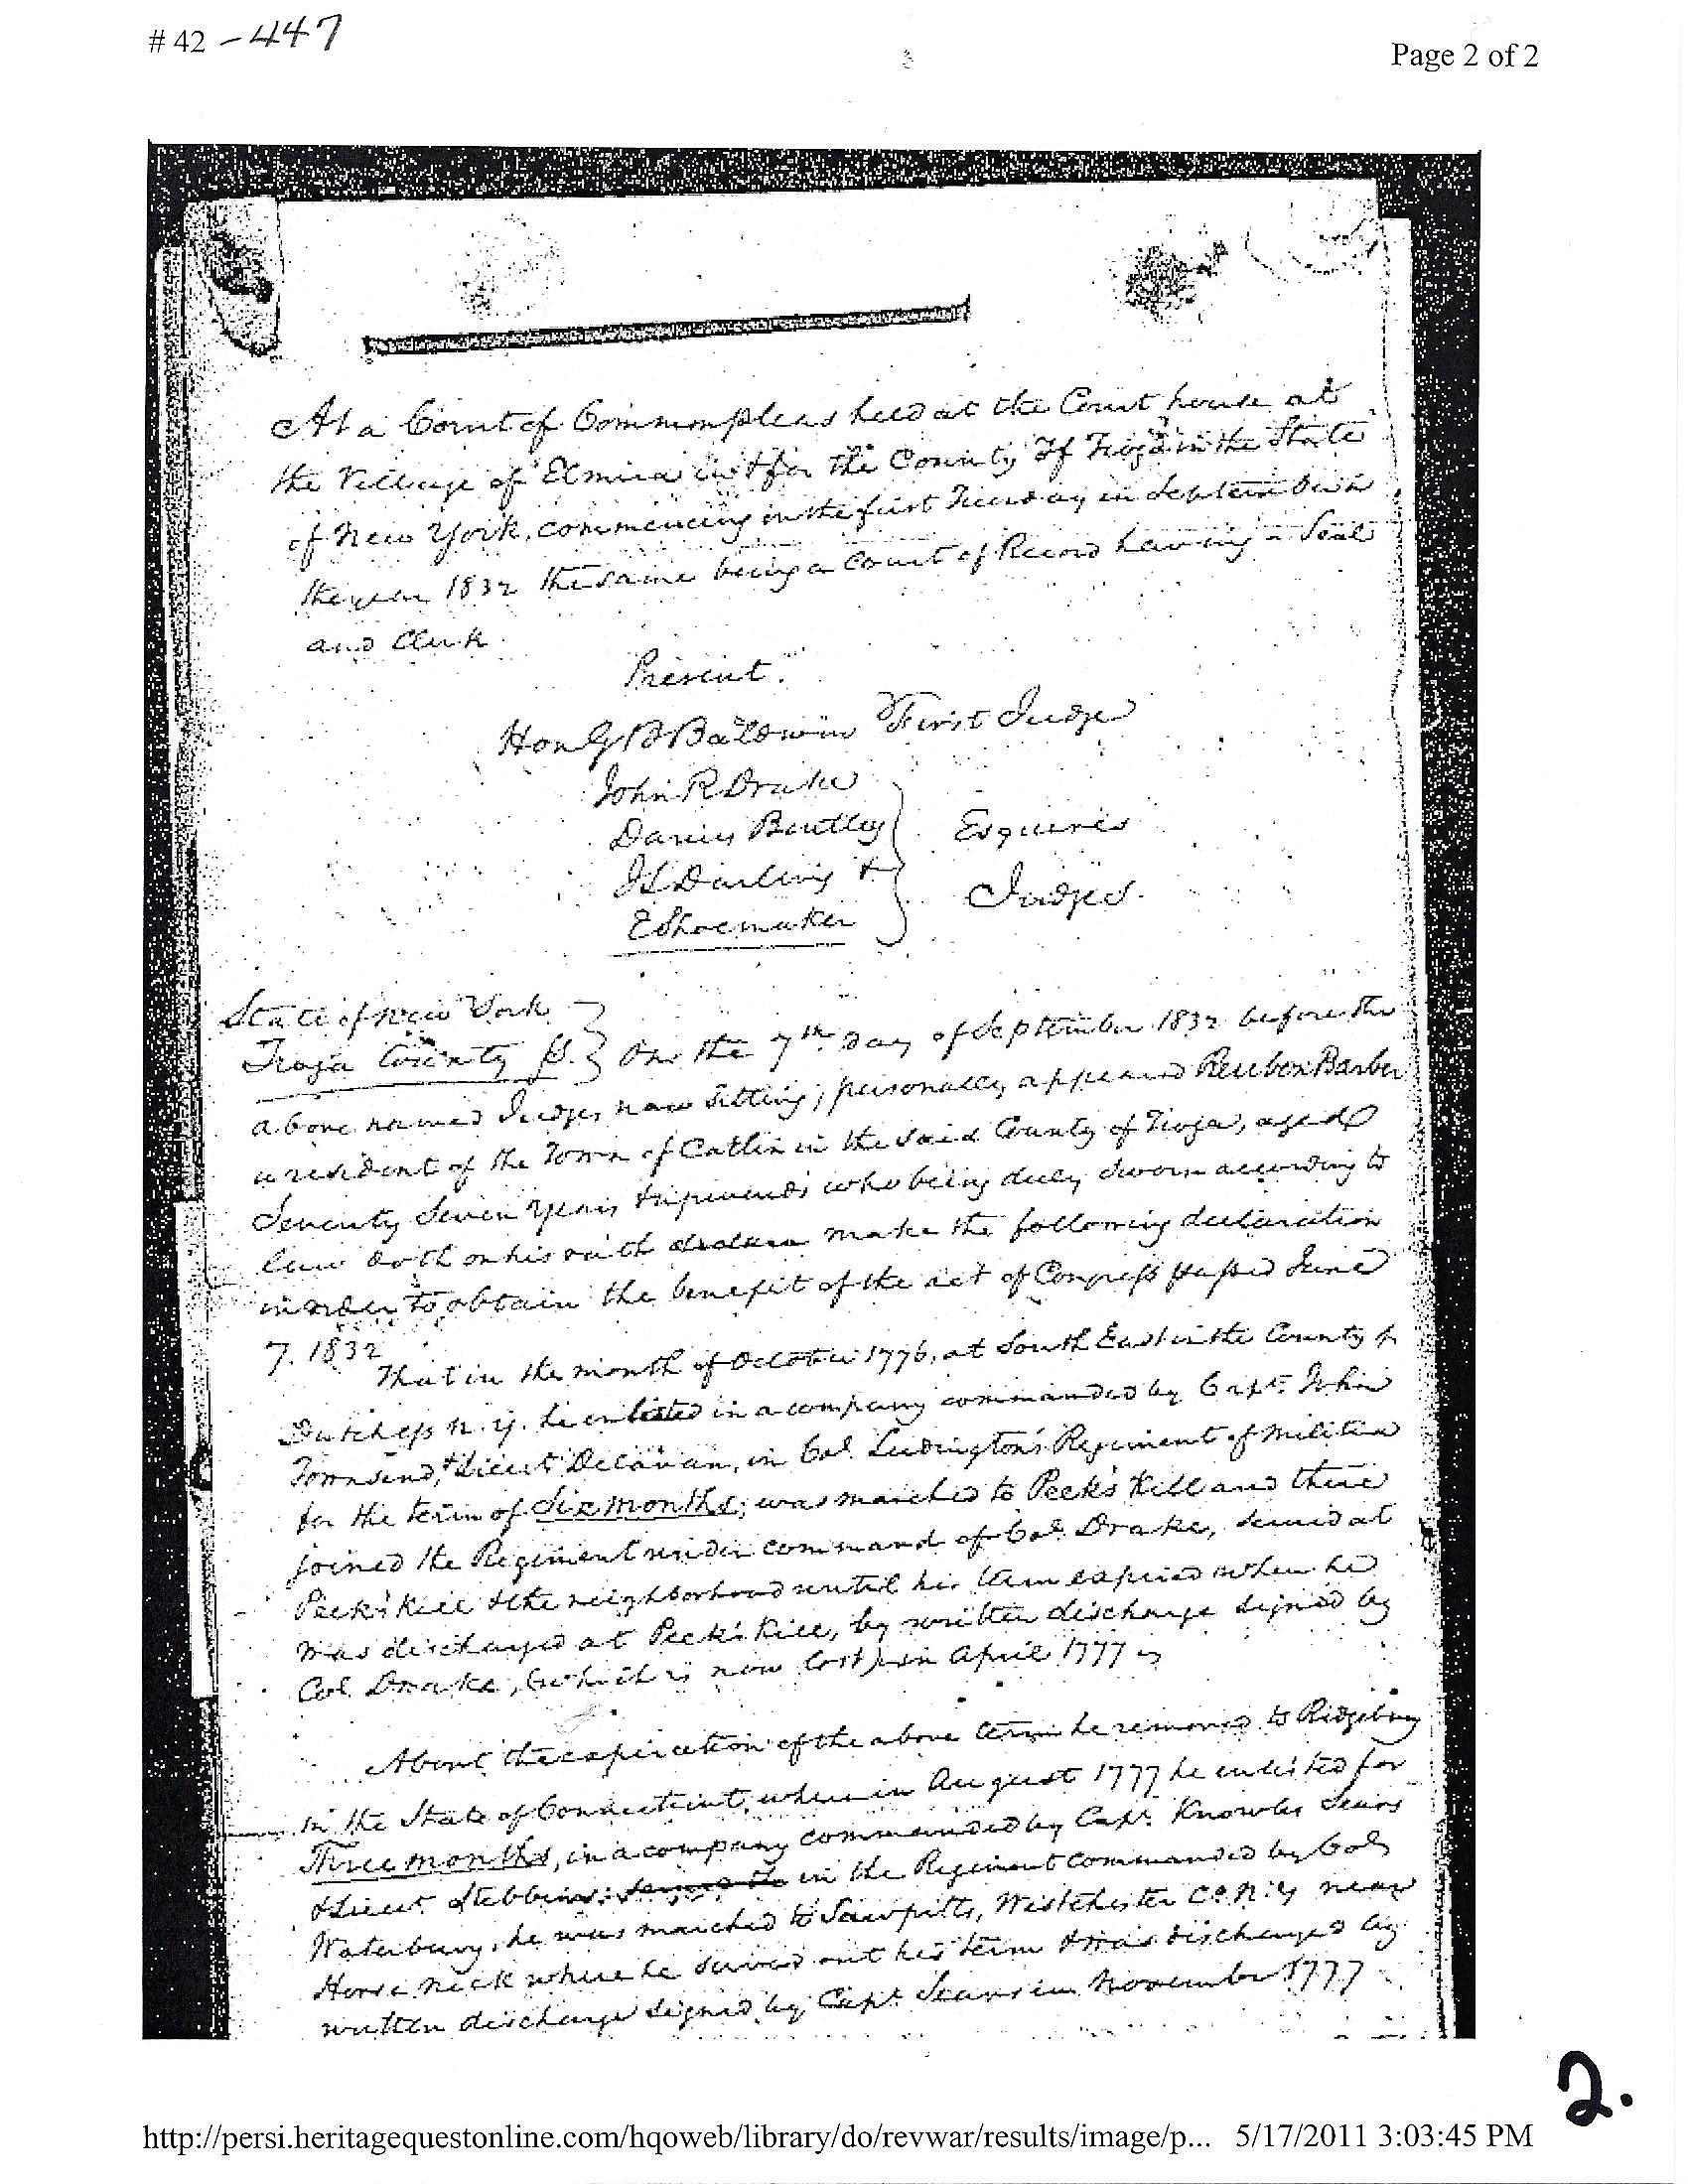 # 42 - 447
Page 2 of 2
At a Court of Common pleas held at the Court house at
the Village of Elmira in & for the County of Tioga in the State
of New York, commencing on the first Tuesday in September in
the year 1832 the same being a Court of Record having a Seal
and Clerk
Present.
Hon G B Baldwin First Judge
John R Drake
Darius Bentley
Esquires
J L Darling &
Judges.
E Shoemaker
State of New York
Tioga County ss. } On the 7th day of September 1832 before the
above named Judges now sitting; personally appeared Reuben Barber
a resident of the Town of Catlin in the said County of Tioga, aged
Seventy Seven Years & upwards who being duly sworn according to
law doth on his oath make the following declaration
in order to obtain the benefit of the act of Congress passed June
7. 1832
That in the month of October 1776, at South East in the County of
Dutchess N. Y. he enlisted in a company commanded by Capt. John
Townsend, & Lieut Delavan, in Col. Ludington's Regiment of militia
for the term of Six months; was marched to Peek's Kill and there
joined the Regiment under command of Col. Drake, served at
Peek's Kill & the neighborhood until his term expired when he
was discharged at Peek's Kill, by written discharge signed by
Col. Drake, (which is now lost) in April 1777
About the expiration of the above term he removed to Ridgbury
in the State of Connecticut, where in August 1777 he enlisted for
Three months, in a company commanded by Capt. Knowles Sears
& Lieut. Stebbins in the Regiment commanded by Col
Waterbury, he was marched to Sawpitts, Westchester Co. N. Y near
Horse Neck where he served out his term & was discharged by
written discharge signed by Capt. Sears in November 1777
2.
http://persi.heritagequestonline.com/hqoweb/library/do/revwar/results/image/p... 5/17/2011 3:03:45 PM